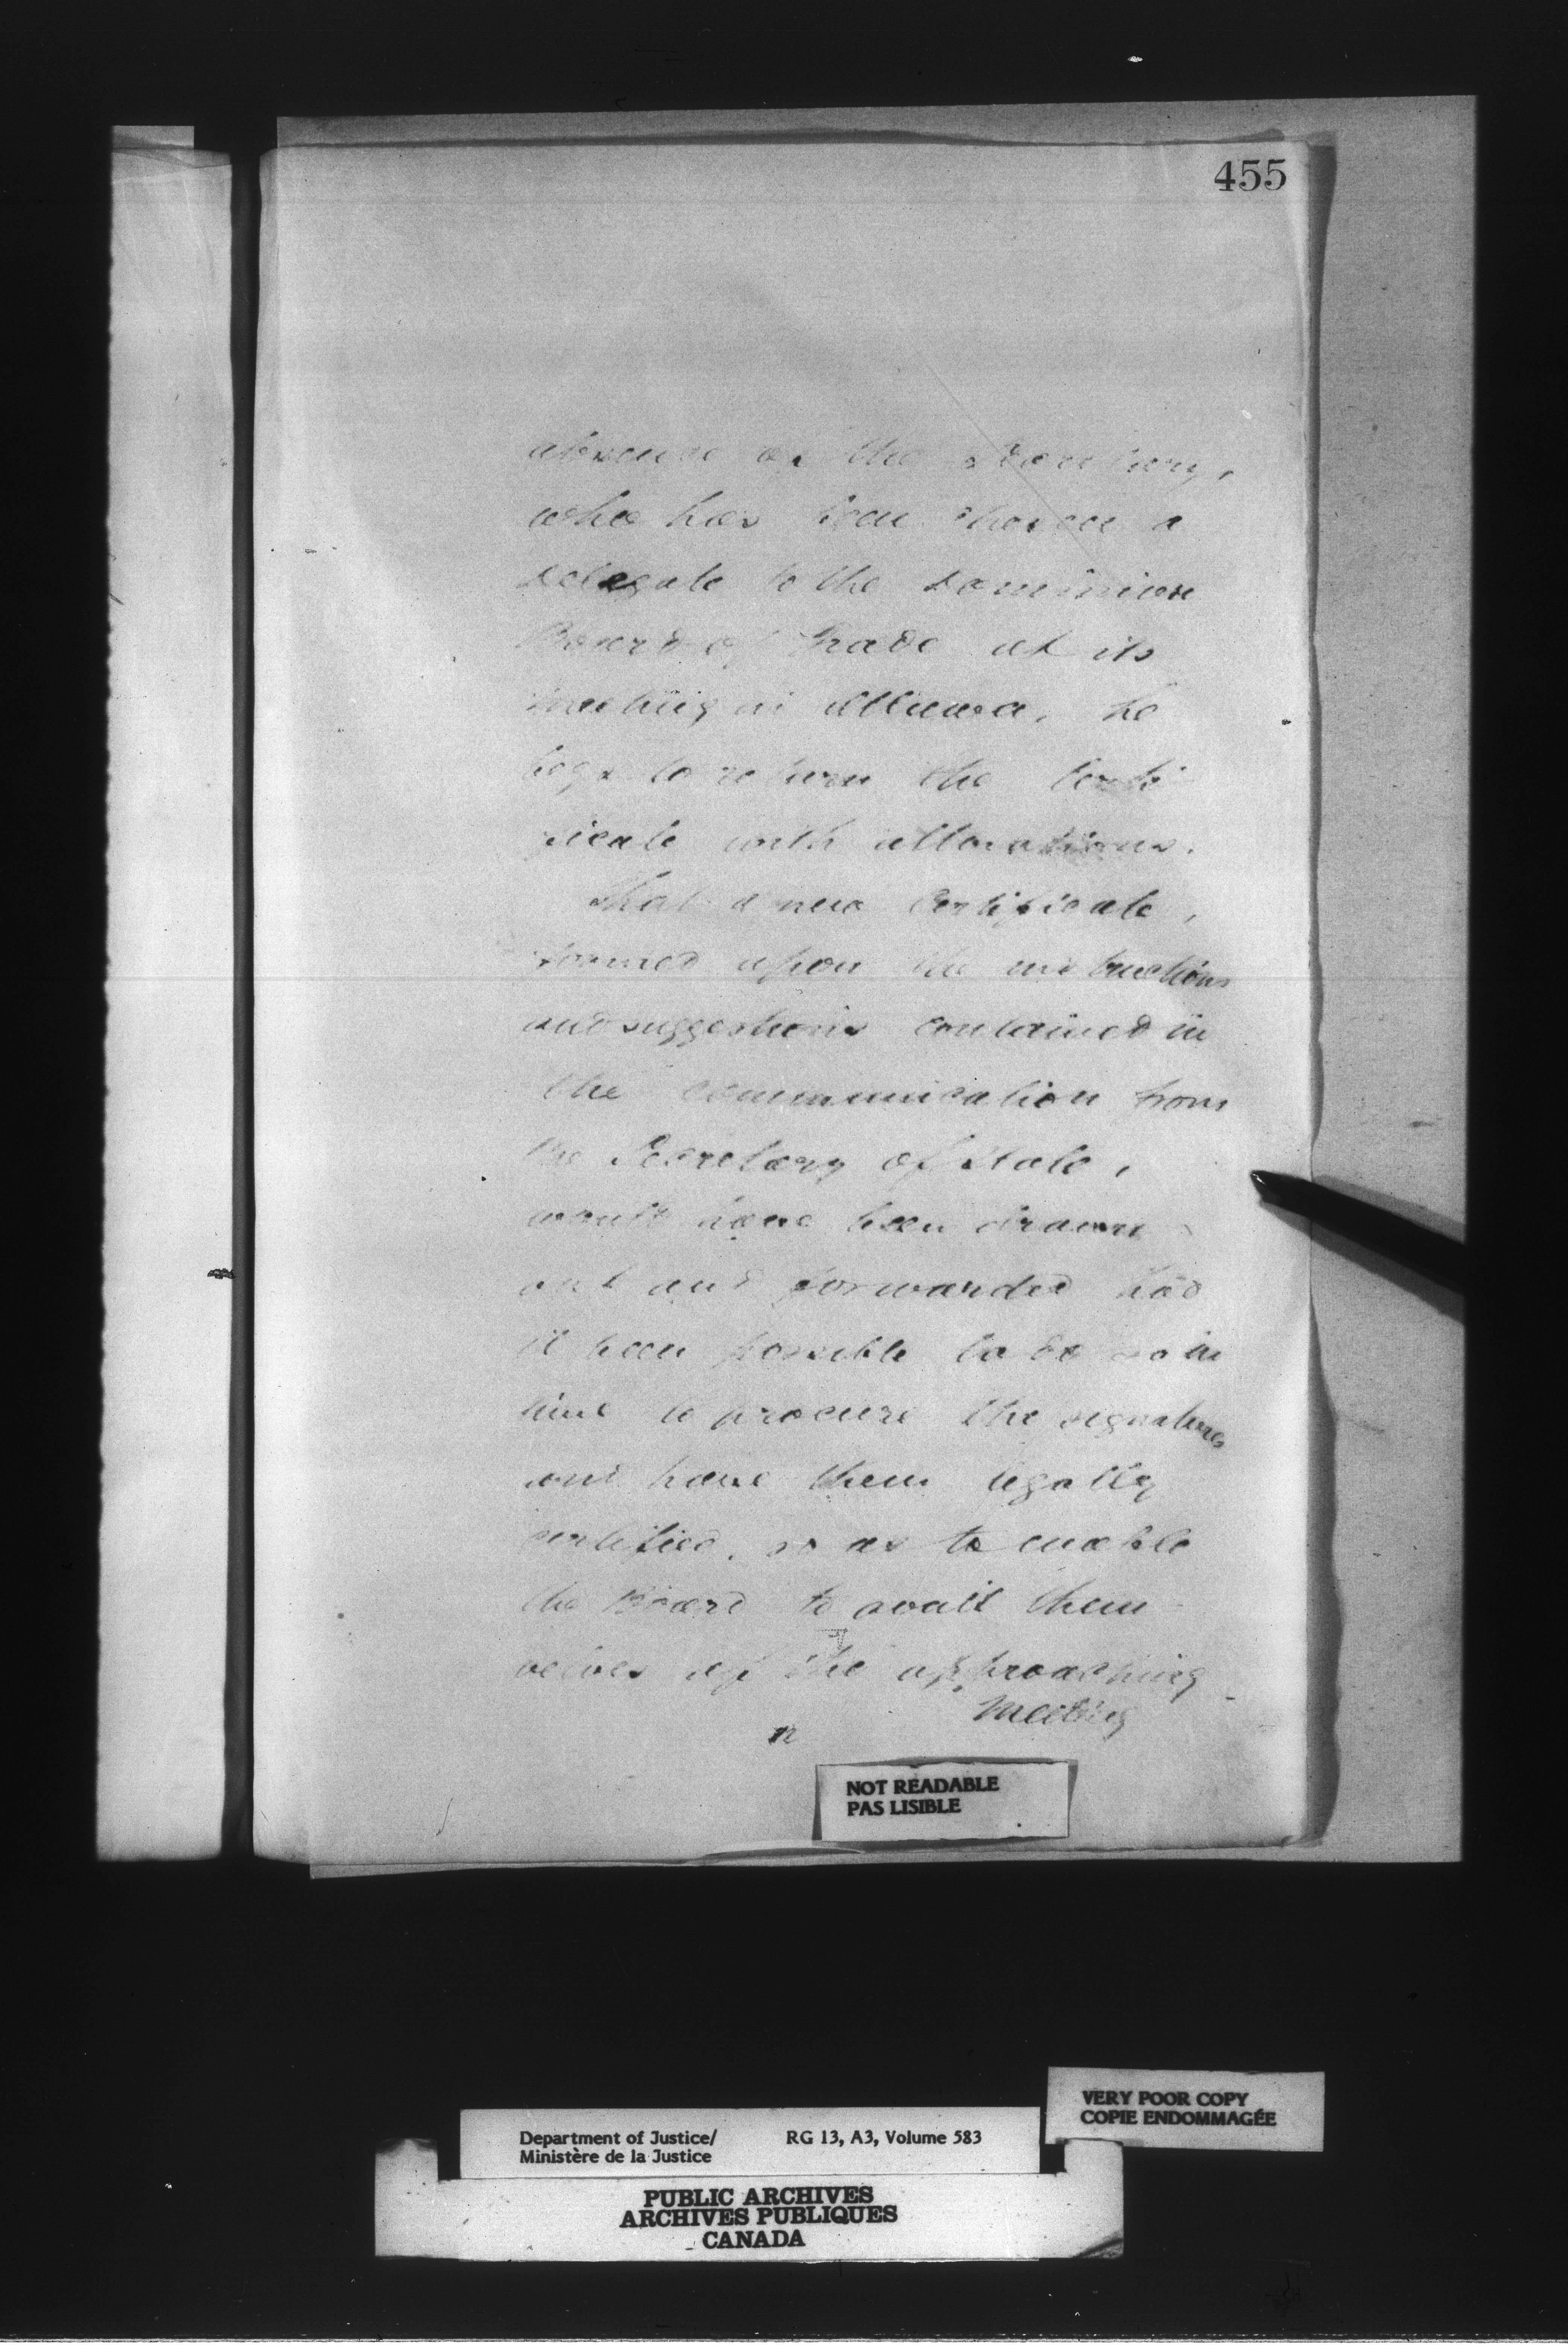 455
absence of the Secretary,
who has been chosen a
delegate to the Dominion
Board of Trade at its
meeting in Ottawa, he
begs to return the Certi
ficate with alterations.
That a new Certificate,
formed upon the instructions
and suggestions contained in
the communication from
the Secretary of State,
would have been drawn
out and forwarded had
it been possible to do so in
time to procure the signatures
and have them legally
certified, so as to enable
the Board to avail them
selves of the approaching
Meeting
NOT READABLE
PAS LISIBLE
VERY POOR COPY
COPIE ENDOMMAGÉE
Department of Justice/ RG 13, A3, Volume 583
Ministère de la Justice
PUBLIC ARCHIVES
ARCHIVES PUBLIQUES
CANADA